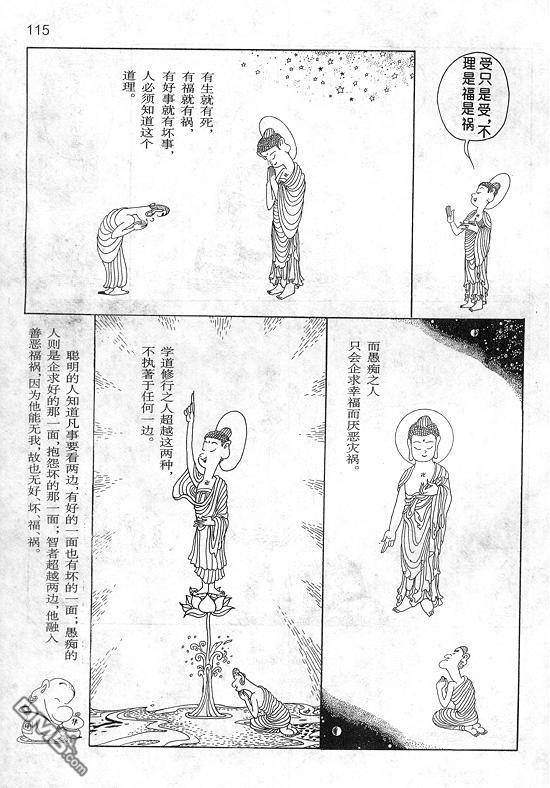 115
受只是受，不
理是福是祸
有生就有死，
有福就有祸，
有好事就有坏事，
人必须知道这个
道理。
而愚痴之人
只会企求幸福而厌恶灾祸。
学道修行之人超越这两种，
不执著于任何一边。
聪明的人知道凡事要看两边，有好的一面也有坏的一面；愚痴的
人则是企求好的那一面，抱怨坏的那一面；智者超越两边，他融入
善恶福祸，因为他能无我，故也无好、坏、福、祸。